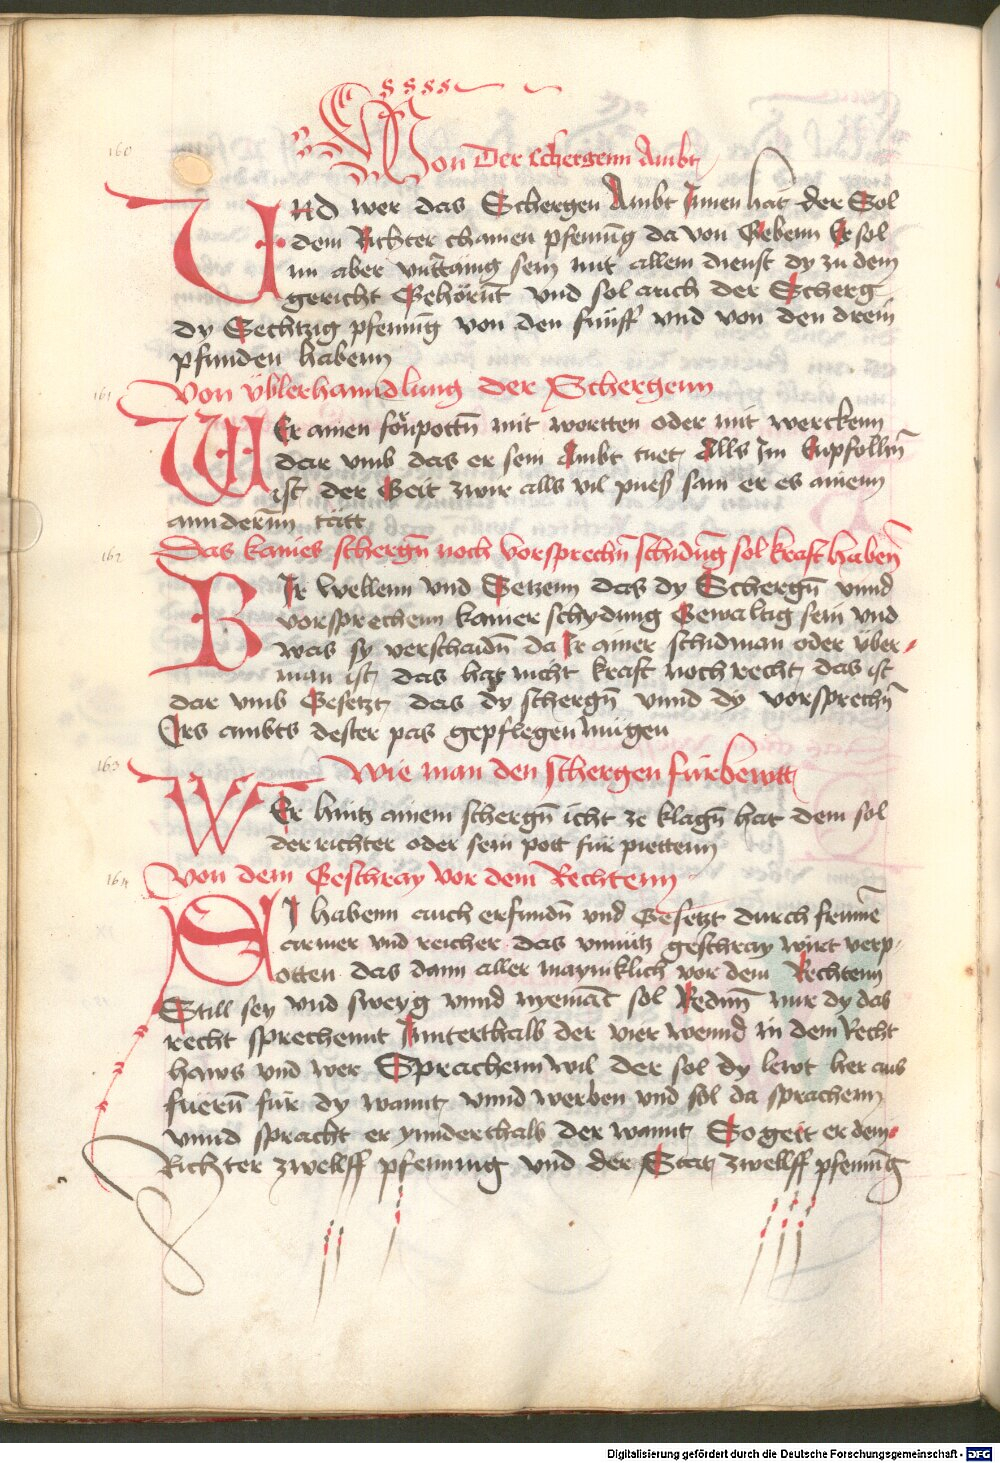 160
Von Der schergenn Ambt
Und wer das Schergen Ambt Innen hat der Sol
dem Richter chainen pfening da von Gebenn Er sol
im aber unttänig sein mit allem dienst dy zu dem
gericht Gehörnt vnd sol auch der Scherg
dy Sechtzig pfenning von den fünff vnd von den drein
pfunden habenn
161
Von üblerhanndlung der Schergenn
WEr ainen mit wortten oder mit werckenn
dar vmb das er sein Ambt tuet Alls Im Enpfollñ
ist der Geit zwir alls vil pueß sam er es ainem
annderñn tätt
162
Das kaines schergñ noch vorsprechñ schidng sol kraft habenñ
WIr wellenn vnd Setzenn das dy Schergñ vnnd
vorsprechenn kainer schydung Gewaltig sein vnd
was sy verschaidñ da Ir ainer schidman oder über
man ist das hat nicht kraft noch recht das ist
dar vmb Gesetzt das dy schergñ vnnd dy vorsprechñ
Irs ambts dester pas gepflegen mügen
163
Wie man den schergen fürbewtt
WEr hintz ainem schergñ icht ze klagñ hat dem sol
der richter oder sein pott für piettenn
164
Von dem Geschray vor dem Rechtenn
SI habenn auch erfundñ vnd Gesetzt durch frumē
armer vnd reicher das vnnütz geschray wirt verp
otten das dann aller mayniklich vor dem Rechtenn
Still sey vnd sweyg vnnd nyemāt sol Rednñ nur dy das
recht sprechennt Innterthalb der vier wennd in dem Recht
haws vnd wer Sprachenn wil der sol dy lewt her aus
füerñ für dy wannt vnnd werben vnd sol da sprachenn
vnnd spracht er ynnderthalb der wannt So geit er dem
Richter zwelff pfenning vnd der Statt zwelff pfennīg
Digitalisierung gefördert durch die Deutsche Forschungsgemeinschaft - DFG